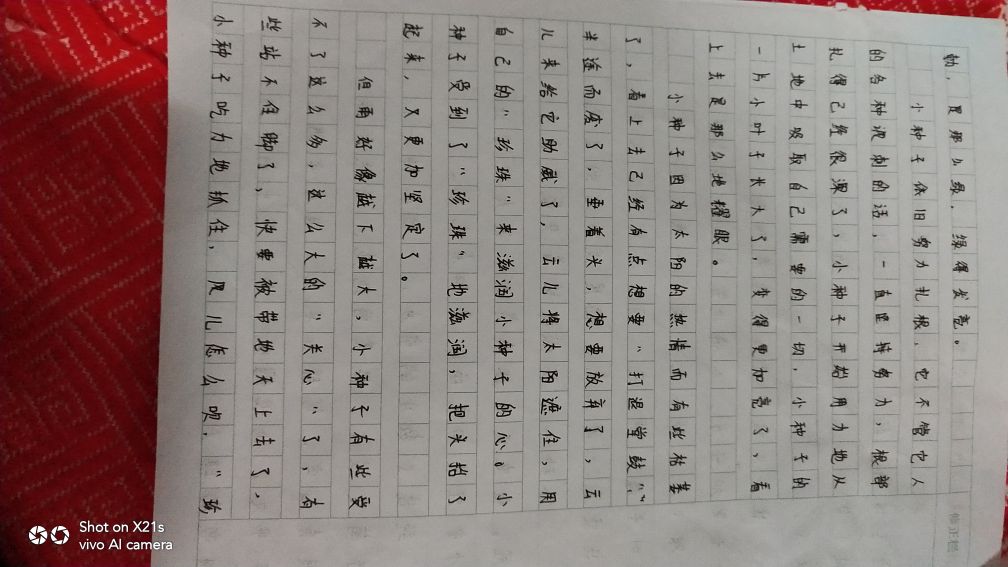 勃，是那么绿，绿得发亮。
小种子依旧努力扎根，它不管它人
的各种讽刺的话，一直坚持努力，根部
扎得已经很深了，小种子开始用力地从
土地中吸取自己需要的一切，小种子的
一片小叶子长大了，变得更加亮了，看
上去是那么地耀眼。
小种子因为太阳的热情而有些枯萎
了，看上去已经有点想要“打退堂鼓”，
半途而废了，垂着头，想要放弃了，云
儿来给它助威了，云儿将太阳遮住，用
自己的“珍珠”来滋润小种子的心。小
种子受到了“珍珠”地滋润，把头抬了
起来，又更加坚定了。
但雨好像越下越大，小种子有些受
不了这么多，这么大的“关心”了，有
些站不住脚了，快要被带地天上去了，
小种子吃力地抓住，风儿怎么吹，“珍
修正栏
Shot on X21s
vivo AI camera